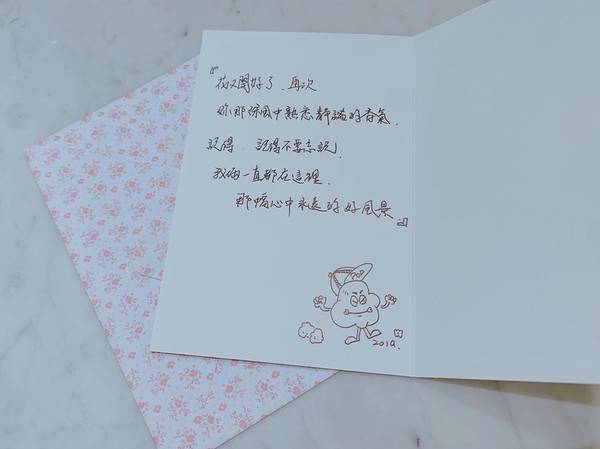 『花又開好了，再次
你那傾風中熟悉靜謐的香氣，
記得，記得不要忘記，
我倆一直都在這裡，
那幅心中永遠的好風景』
2019.